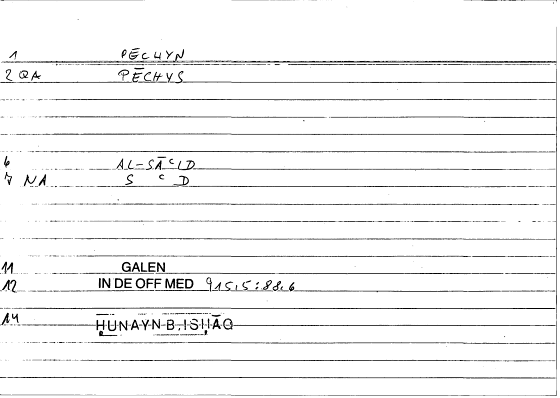 1 PĒCHYN
2 QA PĒCHYS
6 AL-SĀʿID
7 NA S ʿ D
11 GALEN
12 IN DE OFF MED 915,5:88,6
14 ḤUNAYN B. ISḤĀQ